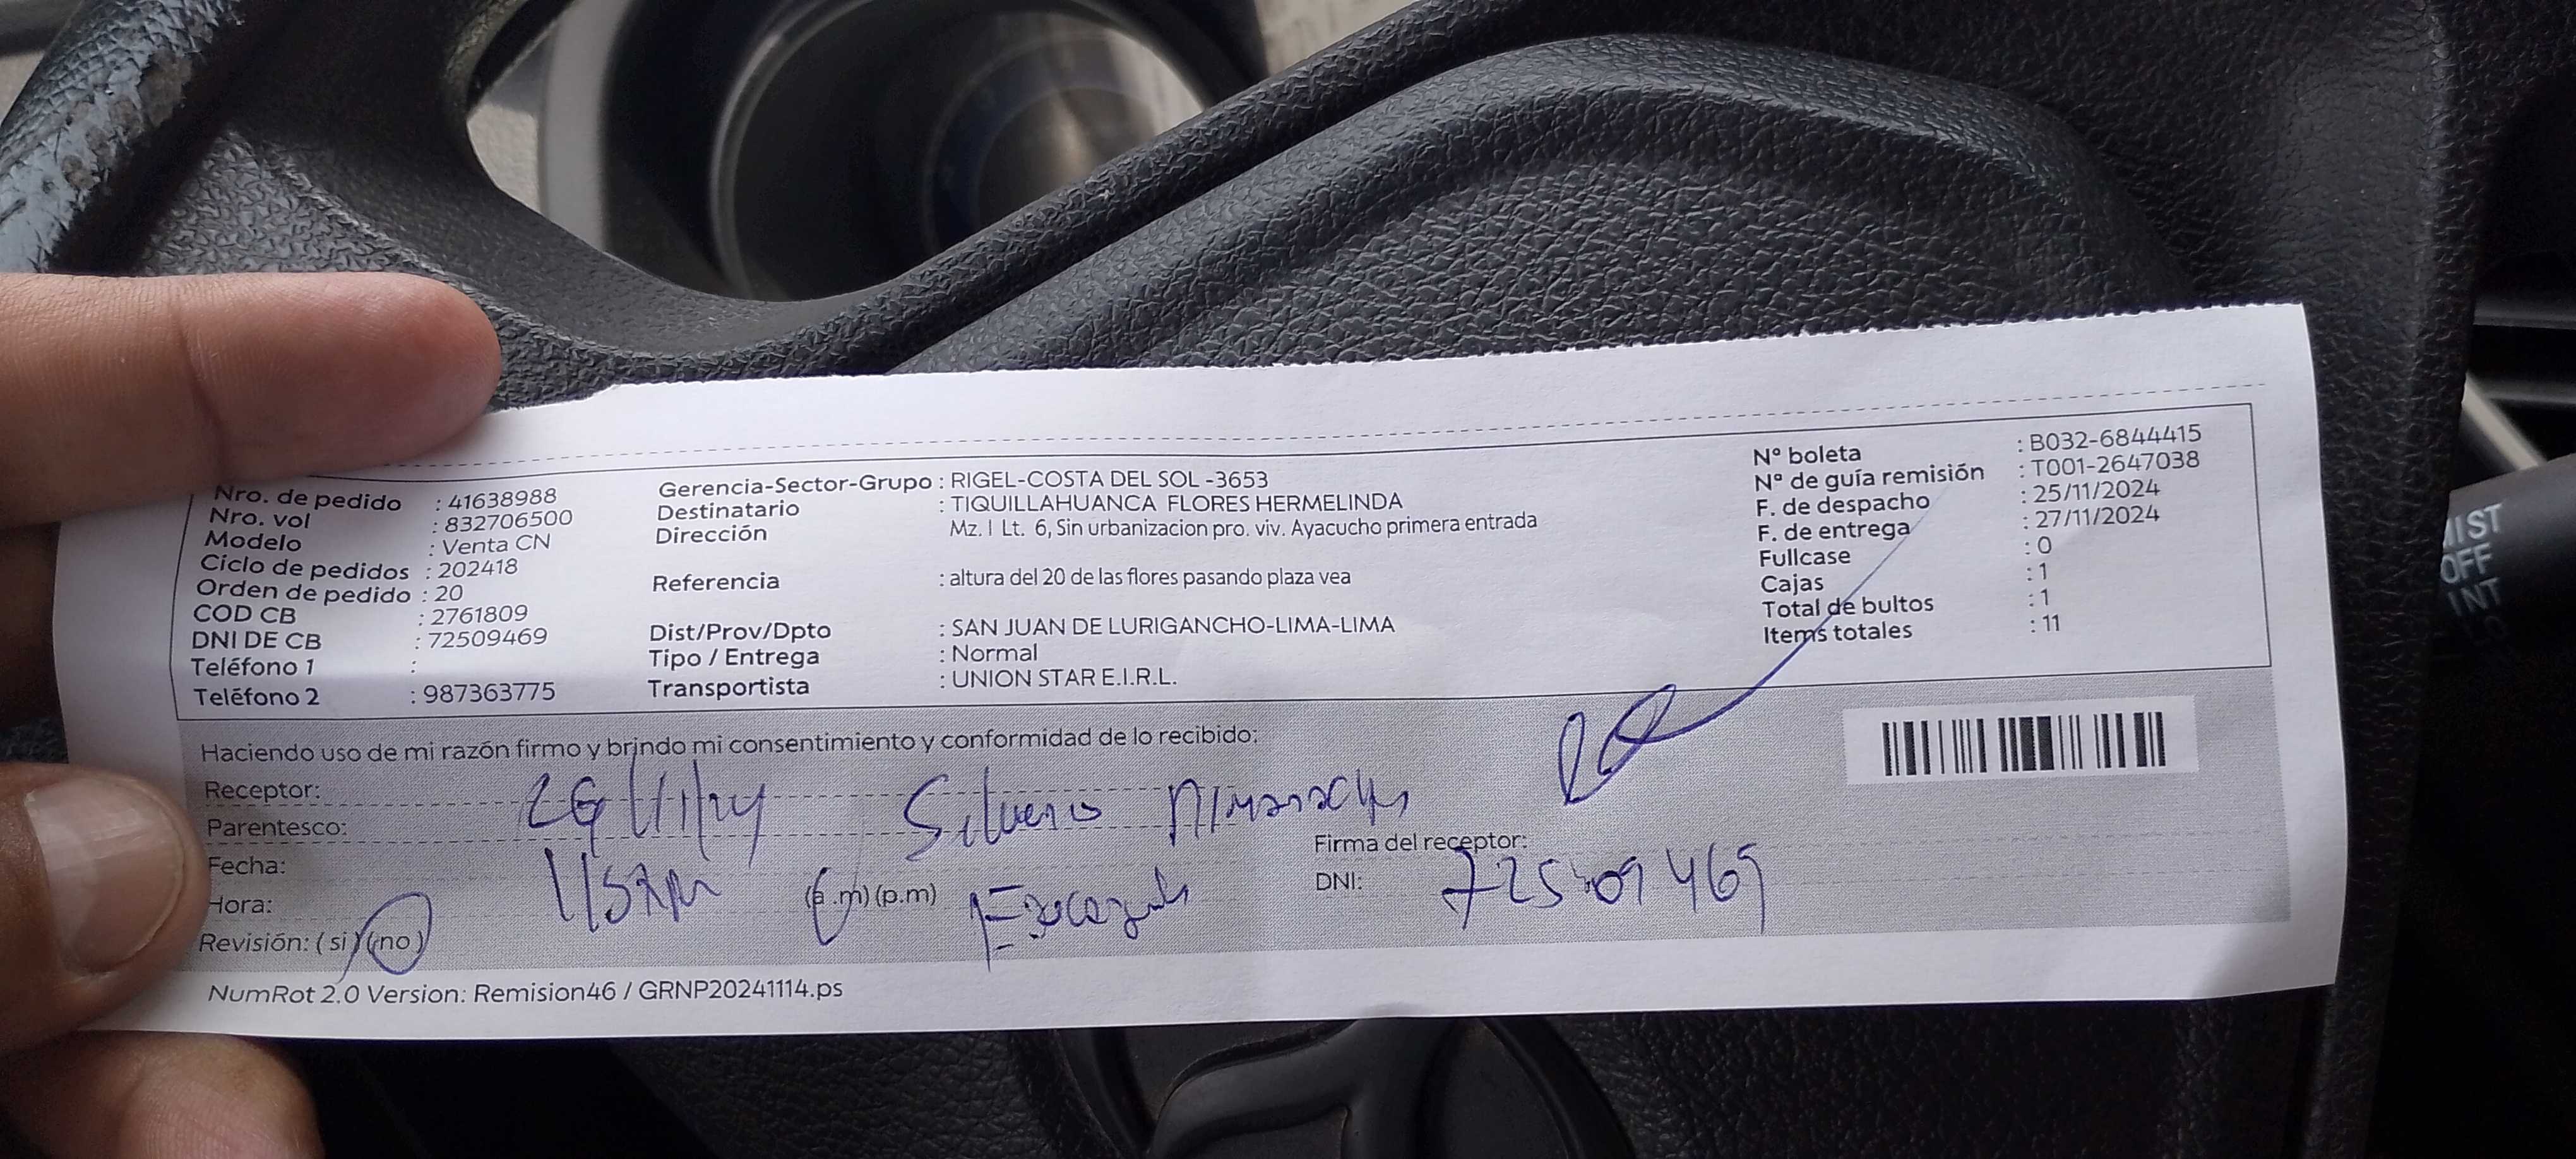 Nro. de pedido : 41638988
Nro. vol : 832706500
Modelo : Venta CN
Ciclo de pedidos : 202418
Orden de pedido : 20
COD CB : 2761809
DNI DE CB : 72509469
Teléfono 1 :
Teléfono 2 : 987363775
Gerencia-Sector-Grupo : RIGEL-COSTA DEL SOL -3653
Destinatario : TIQUILLAHUANCA FLORES HERMELINDA
Dirección Mz. I Lt. 6, Sin urbanizacion pro. viv. Ayacucho primera entrada
Referencia : altura del 20 de las flores pasando plaza vea
Dist/Prov/Dpto : SAN JUAN DE LURIGANCHO-LIMA-LIMA
Tipo / Entrega : Normal
Transportista : UNION STAR E.I.R.L.
N° boleta : B032-6844415
N° de guía remisión : T001-2647038
F. de despacho : 25/11/2024
F. de entrega : 27/11/2024
Fullcase : 0
Cajas : 1
Total de bultos : 1
Items totales : 11
Haciendo uso de mi razón firmo y brindo mi consentimiento y conformidad de lo recibido:
Receptor:
Parentesco:
Fecha:
Hora: (a.m) (p.m)
Revisión: (si) (no)
Firma del receptor:
DNI: 72509469
NumRot 2.0 Version: Remision46 / GRNP20241114.ps
MIST
OFF
INT